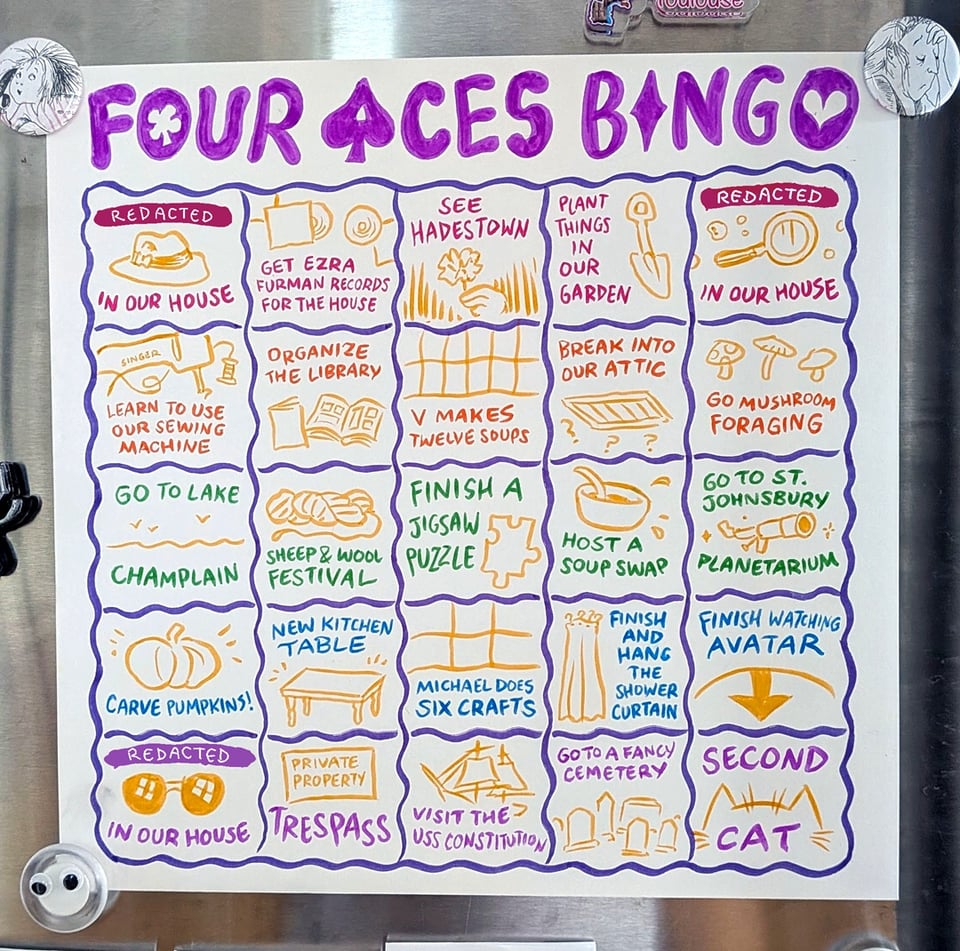 Toulouse
FOUR ACES BINGO
REDACTED
IN OUR HOUSE
GET EZRA
FURMAN RECORDS
FOR THE HOUSE
SEE
HADESTOWN
PLANT
THINGS
IN
OUR
GARDEN
REDACTED
IN OUR HOUSE
SINGER
LEARN TO USE
OUR SEWING
MACHINE
ORGANIZE
THE LIBRARY
V MAKES
TWELVE SOUPS
BREAK INTO
OUR ATTIC
? ? ?
GO MUSHROOM
FORAGING
GO TO LAKE
CHAMPLAIN
SHEEP & WOOL
FESTIVAL
FINISH A
JIGSAW
PUZZLE
HOST A
SOUP SWAP
GO TO ST.
JOHNSBURY
PLANETARIUM
CARVE PUMPKINS!
NEW KITCHEN
TABLE
MICHAEL DOES
SIX CRAFTS
FINISH
AND
HANG
THE
SHOWER
CURTAIN
FINISH WATCHING
AVATAR
REDACTED
IN OUR HOUSE
PRIVATE
PROPERTY
TRESPASS
VISIT THE
USS CONSTITUTION
GO TO A FANCY
CEMETERY
SECOND
CAT